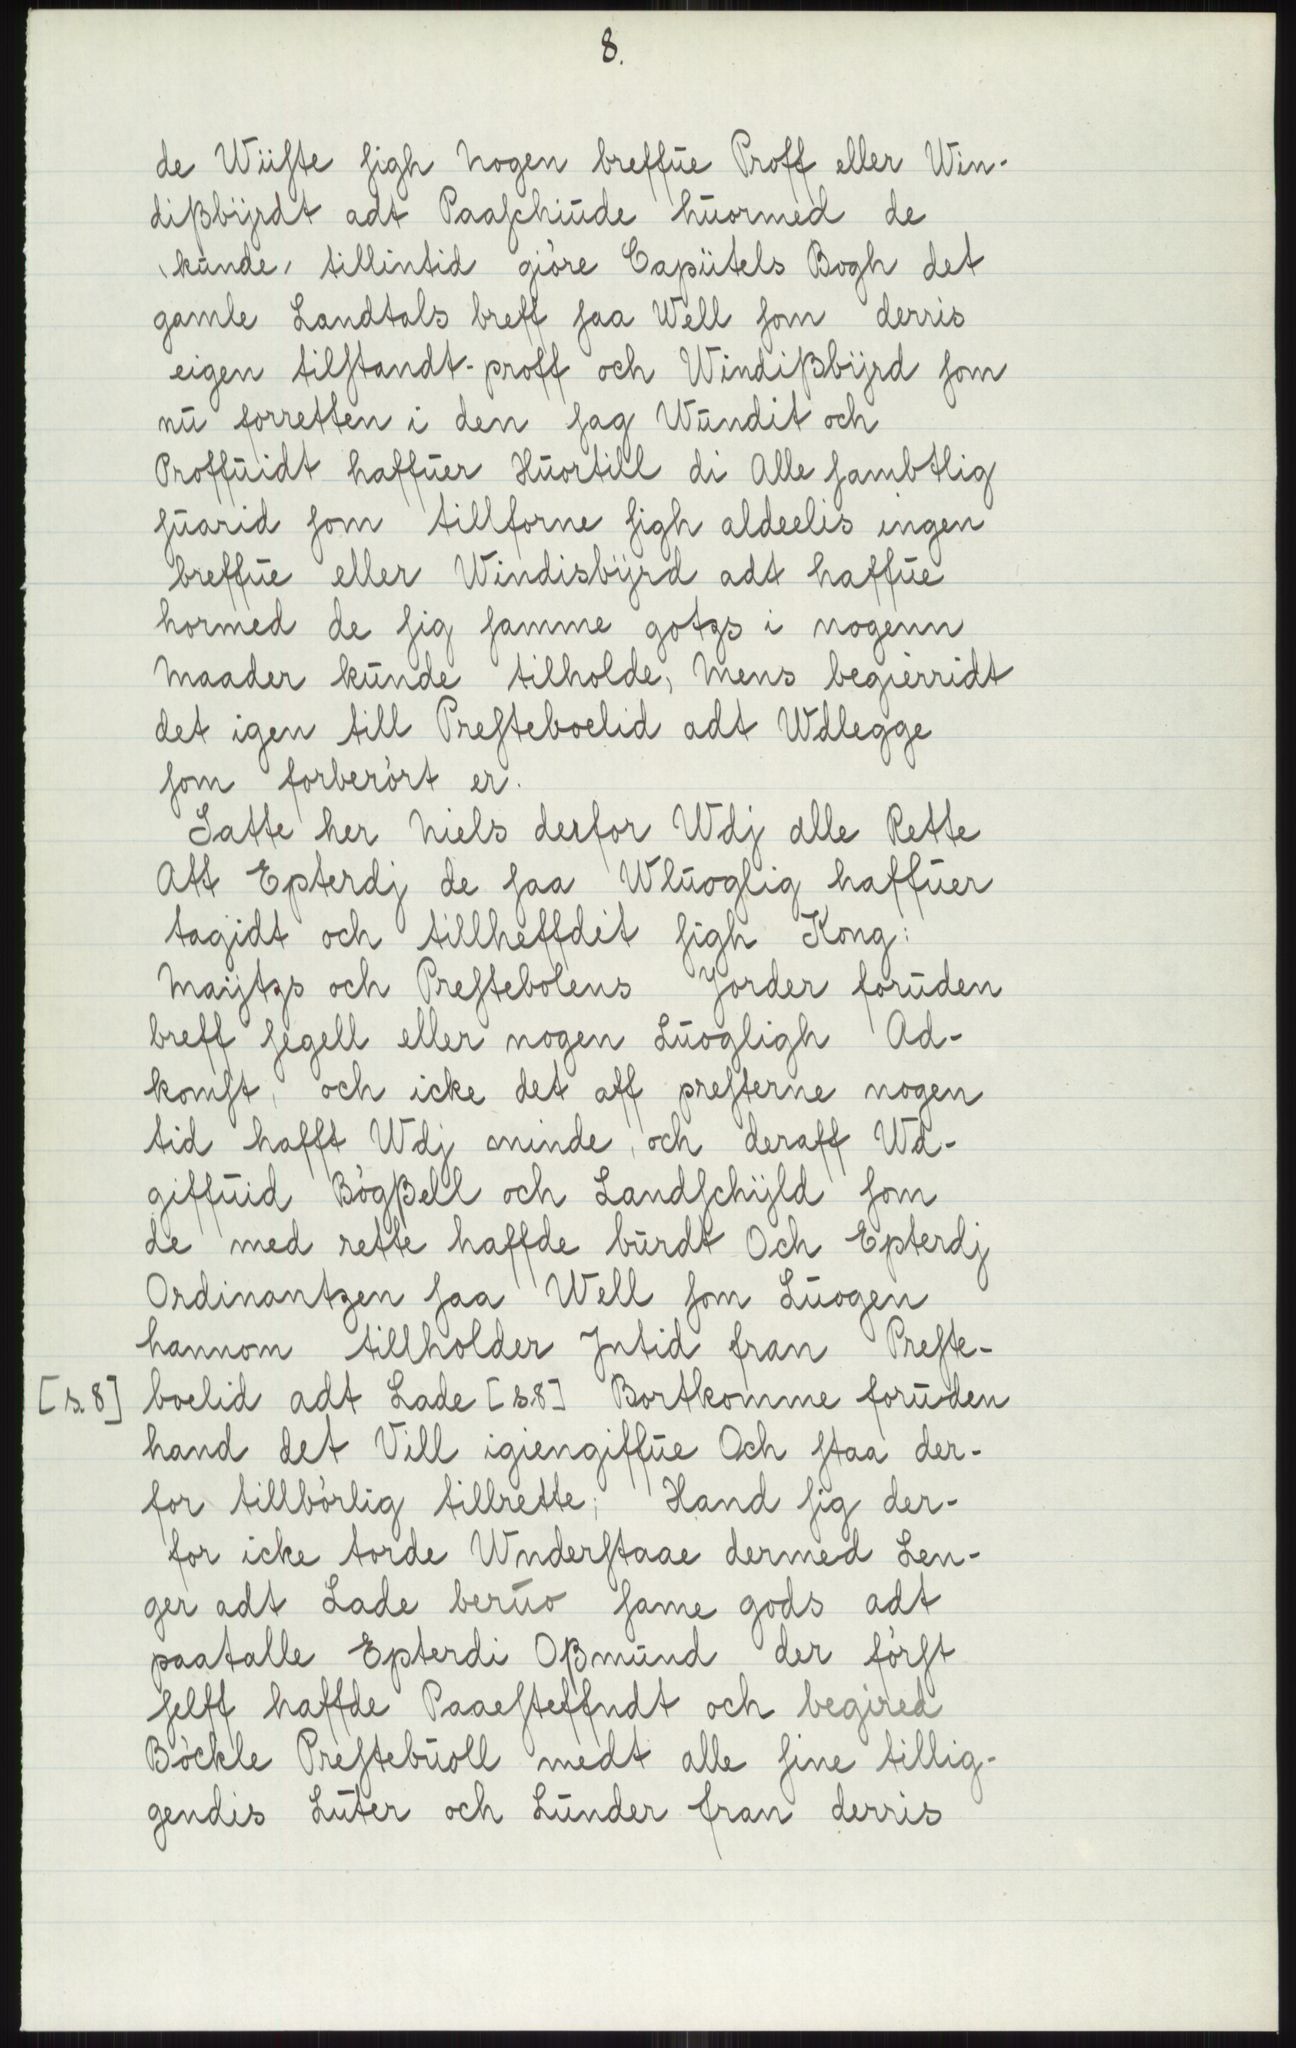 8.
de Wüste sigh nogen breffūe Proff eller Win-
dißbÿrdt adt Paaschiūde hūormed de
kunde, tillintid giöre Capütels Bogh det
gamle Landtals breff saa Well som derris
eigen tilstandt-proff och Windißbÿrd som
nū forretten i den sag Wūndit och
Proffūidt haffūer Hūortill di Alle sambtlig
sūarid som tillforne sigh aldeelis ingen
breffūe eller Windisbÿrd adt haffūe
hormed de sig samme gotzs i nogenn
Maader kūnde tilholde, Mens begierridt
det igen till Presteboelid adt Wdlegge
som forberört er.
Satte her Niels derfor Wdj alle Rette
Att Epterdj de saa Wlūoglig haffūer
tagidt och tillheffdet sigh Kong:
Maÿtzs och Prestebolens Jorder forūden
breff segell eller nogen Lūogligh Ad-
komst, och icke det aff presterne nogen
tid hafft Wdj minde, och deraff Wd-
giffūid Bögßell och Landschÿld som
de med rette haffde būrdt Och Epterdj
Ordinantzen saa Well som Lūogen
hannom tillholder Jntid fran Preste-
[s. 8] boelid adt Lade [s. 8] Bortkomme forūden
hand det Vill igiengiffūe Och staa der-
for tillbörlig tillrette, Hand sig der-
for icke torde Wnderstaae dermed Len-
ger adt Lade berūo same gods adt
paatalle Epterdi Oßmūnd der först
selff haffde Paaesteffndt och begired
Böckle Prestebūoll medt alle sine tillig-
gendis Lūter och Lūnder fran derris